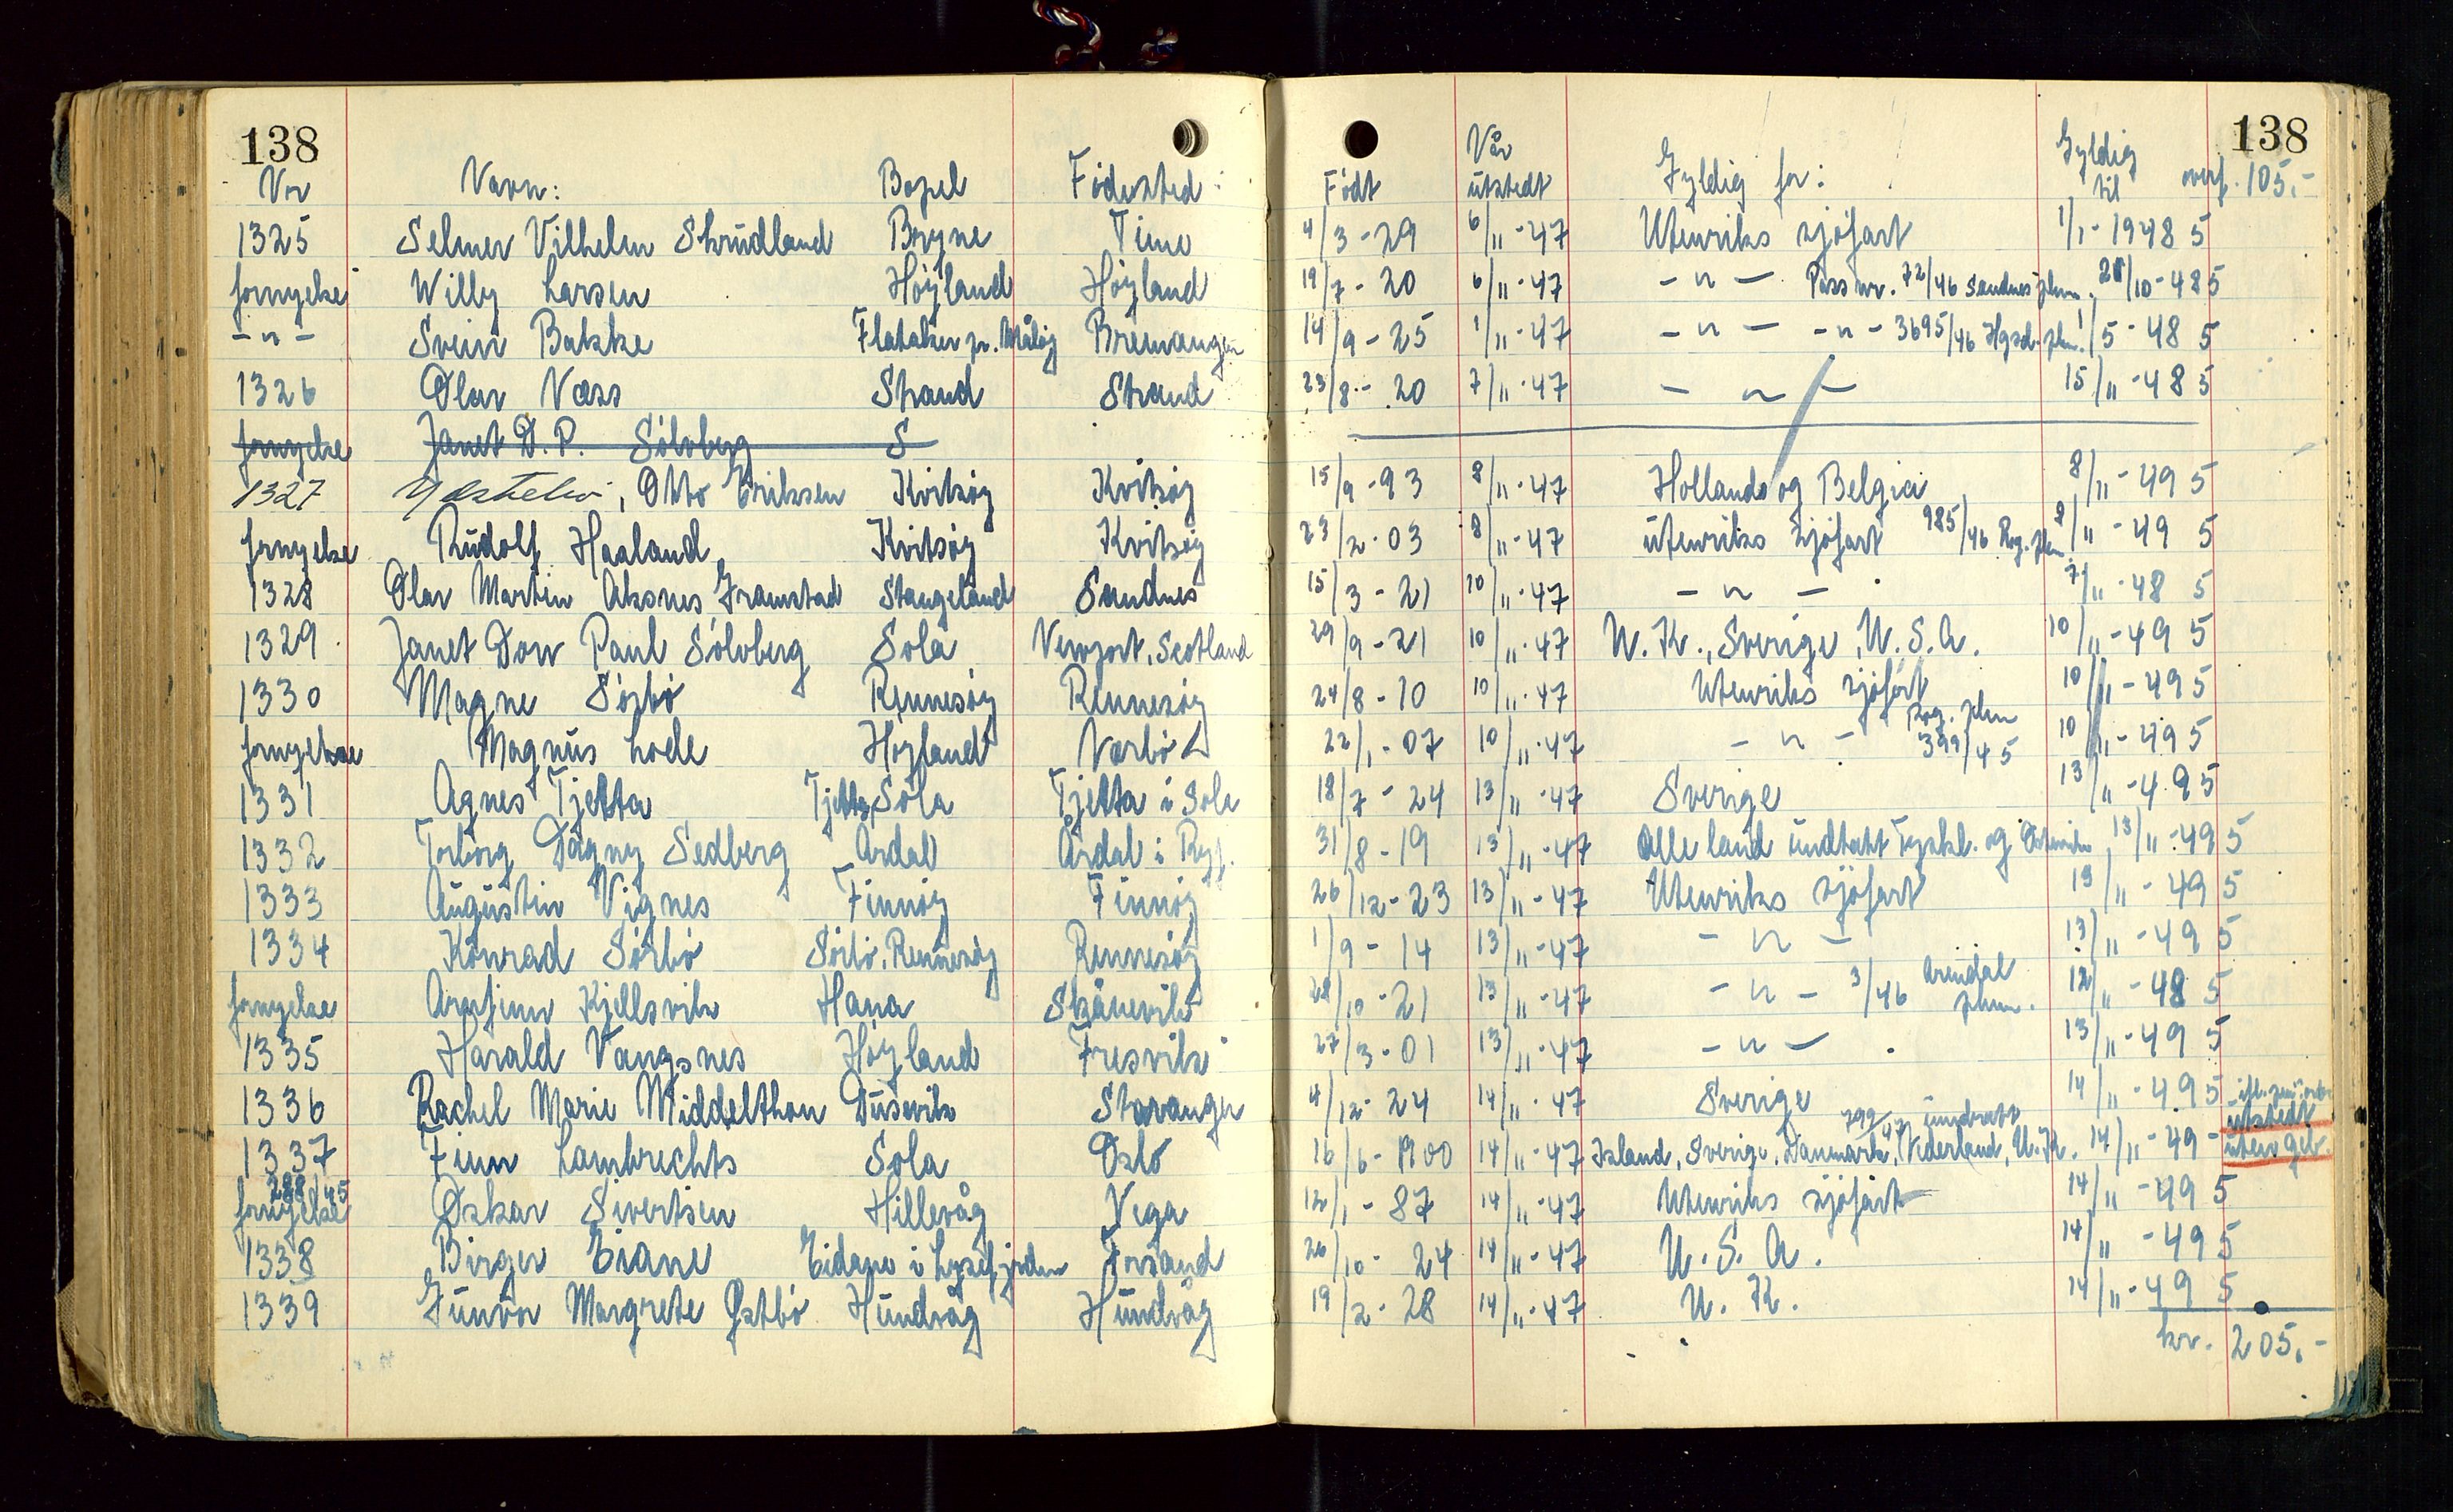 138 138
Nr Navn: Bopel Födested: Födt Når utstedt Gyldig for: Gyldig til overf. 105.-
1325 Selmer Vilhelm Skrudland Bryne Time 4/3-29 6/11-47 Utenriks sjöfart 1/1-1948 5
fornyelse Willy Larsen Höyland Höyland 19/7-20 6/11-47 -"- Pass nr. 72/46 Sandnes plm. 28/10-48 5
-"- Svein Bakke Flatøken pr. Måløy Bremanger 14/9-25 1/11-47 -"- -"- 3695/46 Hgsd. plm. 1/5-48 5
1326 Olav Næss Strand Strand 23/8-20 7/11-47 -"- 15/11-48 5
fornyelse Janet D. P. Sölvberg S
1327 Ydstebø, Otto Eriksen Kvitsöy Kvitsöy 15/9-93 8/11-47 Holland og Belgia 8/11-49 5
fornyelse Rudolf Haaland Kvitsöy Kvitsöy 23/2-03 8/11-47 utenriks sjöfart 985/46 Rog. plm. 8/11-49 5
1328 Olav Martin Aksnes Gramstad Stangeland Sandnes 15/3-21 10/11-47 -"- 7/11-48 5
1329 Janet Dow Paul Sölvberg Sola Newport, Scotland 29/9-21 10/11-47 U.K., Sverige, U.S.A. 10/11-49 5
1330 Magne Sörbö Rennesöy Rennesöy 24/8-10 10/11-47 Utenriks sjöfart 10/11-49 5
fornyelse Magnus Lode Höyland Nærbö 22/1-07 10/11-47 -"- Rog. plm 399/45 10/11-49 5
1331 Agnes Tjetta Tjetta, Sola Tjetta i Sola 18/7-24 13/11-47 Sverige 13/11-49 5
1332 Torborg Dagny Sedberg Årdal Årdal i Ryf. 31/8-19 13/11-47 Alle land undtatt Tyskl. og 13/11-49 5
1333 Augustin Vignes Finnöy Finnöy 26/12-23 13/11-47 Utenriks sjöfart 13/11-49 5
1334 Konrad Sörbö Sörbö, Rennesöy Rennesöy 1/9-14 13/11-47 -"- 13/11-49 5
fornyelse Arnfinn Kjellsvik Hana Skånevik 28/10-21 13/11-47 -"- 3/46 Arendal plm. 12/11-48 5
1335 Harald Vangsnes Höyland Fresvik 27/3-01 13/11-47 -"- 13/11-49 5
1336 Rachel Marie Middelthon Dusavik Stavanger 4/12-24 14/11-47 Sverige 14/11-49 5
1337 Finn Lambrechts Sola Oslo 16/6-1900 14/11-47 Island, Sverige, Danmark, Nederland, U.K. 14/11-49 - utstedt uten geb.
fornyelse 288/45 Oskar Sivertsen Hillevåg Vega 12/1-87 14/11-47 Utenriks sjöfart 14/11-49 5
1338 Birger Eiane Eidane i Lysefjorden Forsand 26/10-24 14/11-47 U.S.A. 14/11-49 5
1339 Gunvor Margrete Østbö Hundvåg Hundvåg 19/2-28 14/11-47 U.K. 14/11-49 5
kr. 205.-